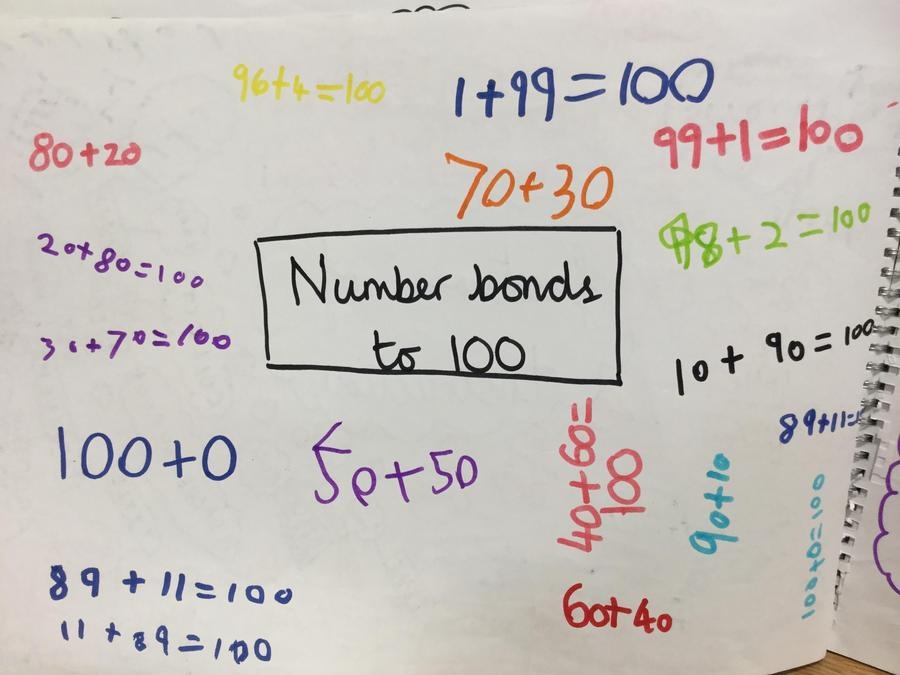 96+4=100
1+99=100
99+1=100
80+20
70+30
98+2=100
20+80=100
Number bonds
to 100
30+70=100
10+90=100
89+11=
100+0
50+50
40+60=
100
90+10
100+0=100
89+11=100
11+89=100
60+40